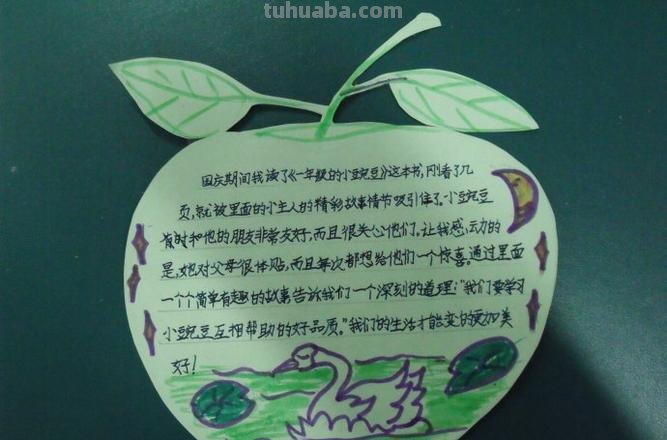 tuhuaba.com
国庆期间我读了《一年级的小豌豆》这本书,刚看了几
页,就被里面的小主人的精彩故事情节吸引住了。小豌豆
有时和他的朋友非常友好,而且很关心他们,让我感动的
是,她对父母很体贴,而且每次都想给他们一个惊喜。通过里面
一个个简单有趣的故事告诉我们一个深刻的道理:"我们要学习
小豌豆互相帮助的好品质。"我们的生活才能变的更加美
好!